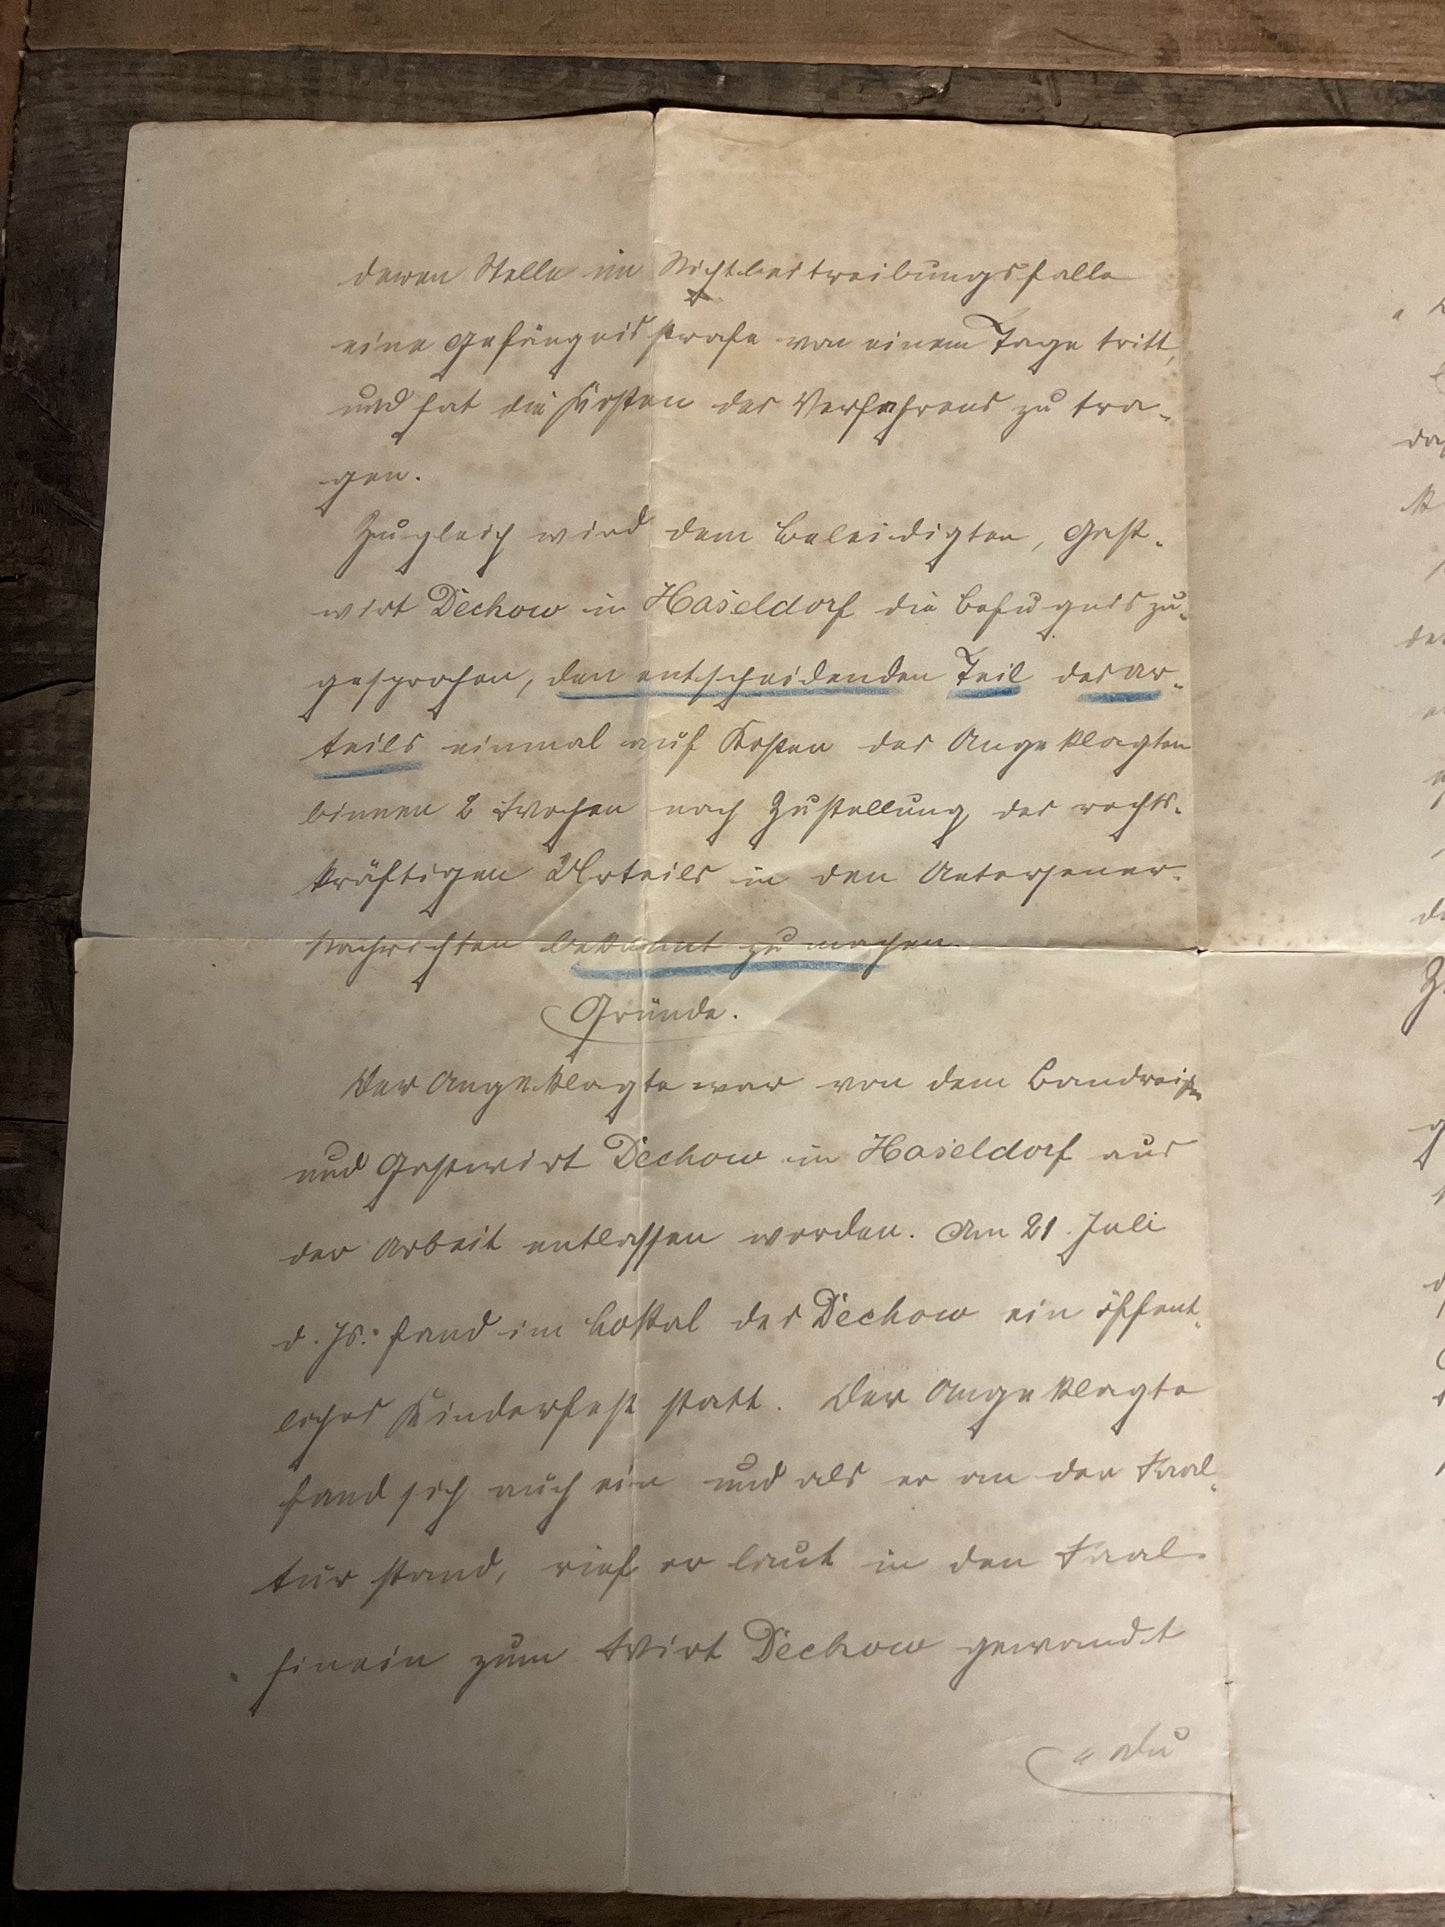 deren Stelle im Nichtbeitreibungsfalle
eine Gefängnisstrafe von einem Tage tritt,
und hat die Kosten des Verfahrens zu tra-
gen.
Zugleich wird dem Beleidigten, Gast-
wirt Dechow in Haseldorf die Befugnis zu-
gesprochen, den entscheidenden Teil des Ur-
teils einmal auf Kosten des Angeklagten
binnen 2 Wochen nach Zustellung des rechts-
kräftigen Urteils in den Uetersener-
Nachrichten bekannt zu machen.
Gründe.
Der Angeklagte war von dem Bandreißer
und Gastwirt Dechow in Haseldorf aus
der Arbeit entlassen worden. Am 21. Juli
d. Js. fand im Lokal des Dechow ein öffent-
liches Kinderfest statt. Der Angeklagte
fand sich auch ein und als er an der Saal-
tür stand, rief er laut in den Saal
hinein zum Wirt Dechow gewandt
"Du